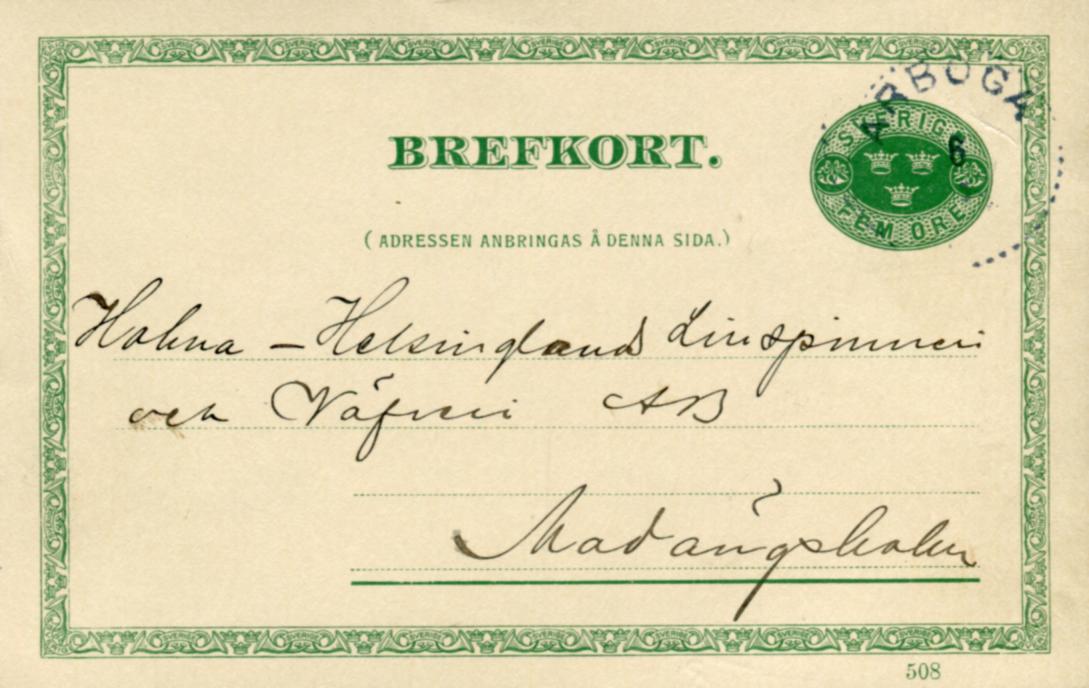 ARBOGA
SVERIGE
6
FEM ÖRE
BREFKORT.
(ADRESSEN ANBRINGAS Å DENNA SIDA.)
Holma - Helsinglands Linspinneri
och Väfveri AB
Madängsholm
508